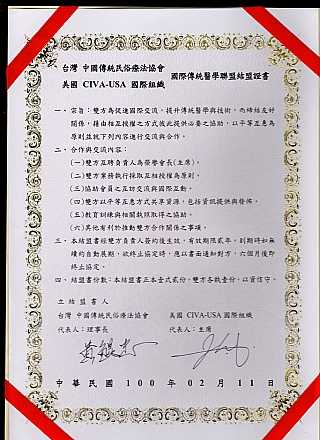 台灣 中國傳統民俗療法協會
國際傳統醫學聯盟結盟證書
美國 CIVA-USA 國際組織
一、宗旨：雙方為促進國際交流，提升傳統醫學與技術，而締結友好
關係，藉由相互授權之方式彼此提供必要之協助，以平等互惠為
原則並就下列內容進行交流與合作。
二、合作與交流內容：
(一)雙方互聘負責人為榮譽會長(主席)。
(二)雙方業務執行採取互相授權為原則。
(三)協助會員之互訪交流與國際互動。
(四)雙方以平等互惠方式共享資源，包括資訊提供與發佈。
(五)教育訓練與相關執照取得之協助。
(六)其他有利於推動雙方合作關係之事項。
三、本結盟書經雙方負責人簽約後生效，有效期限貳年，到期時如無
續約自動展期，欲終止協定時，應以書面通知對方，六個月後即
終止協定。
四、結盟書份數：本結盟書正本壹式貳份，雙方各執壹份，以資信守。
立結盟書人
台灣 中國傳統民俗療法協會 美國 CIVA-USA 國際組織
代表人：理事長 代表人：主席
中華民國 100 年 02 月 11 日